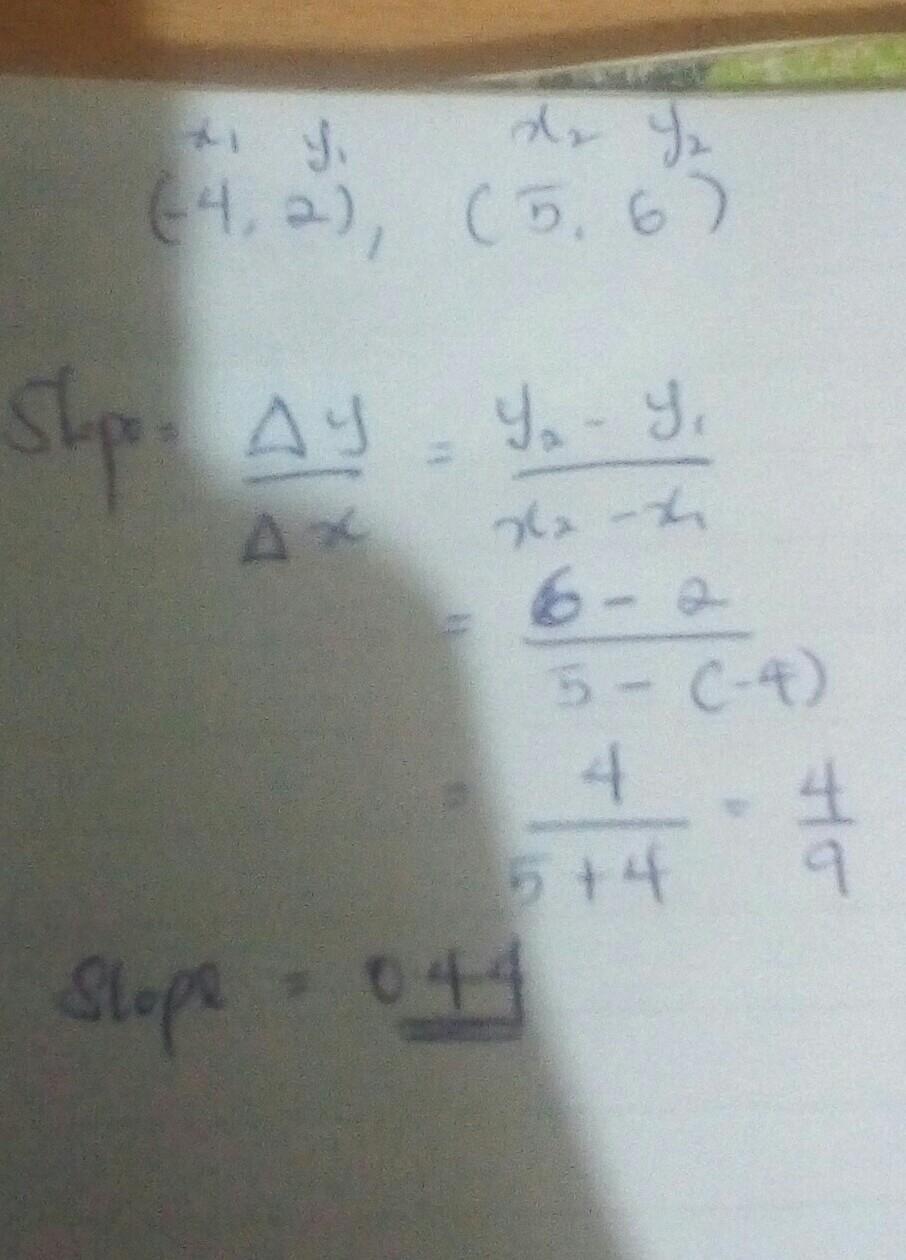 x₁ y₁ x₂ y₂
(-4, 2), (5, 6)
Slope = Δy = y₂ - y₁
Δx x₂ - x₁
= 6 - 2
5 - (-4)
= 4 = 4
5 + 4 9
Slope = 0.44